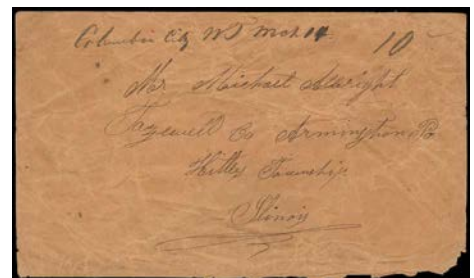 Columbia City WT Mch 14
10
Mr Michael Albright
Tazewell Co Armington PO
Hittle Township
Illinois